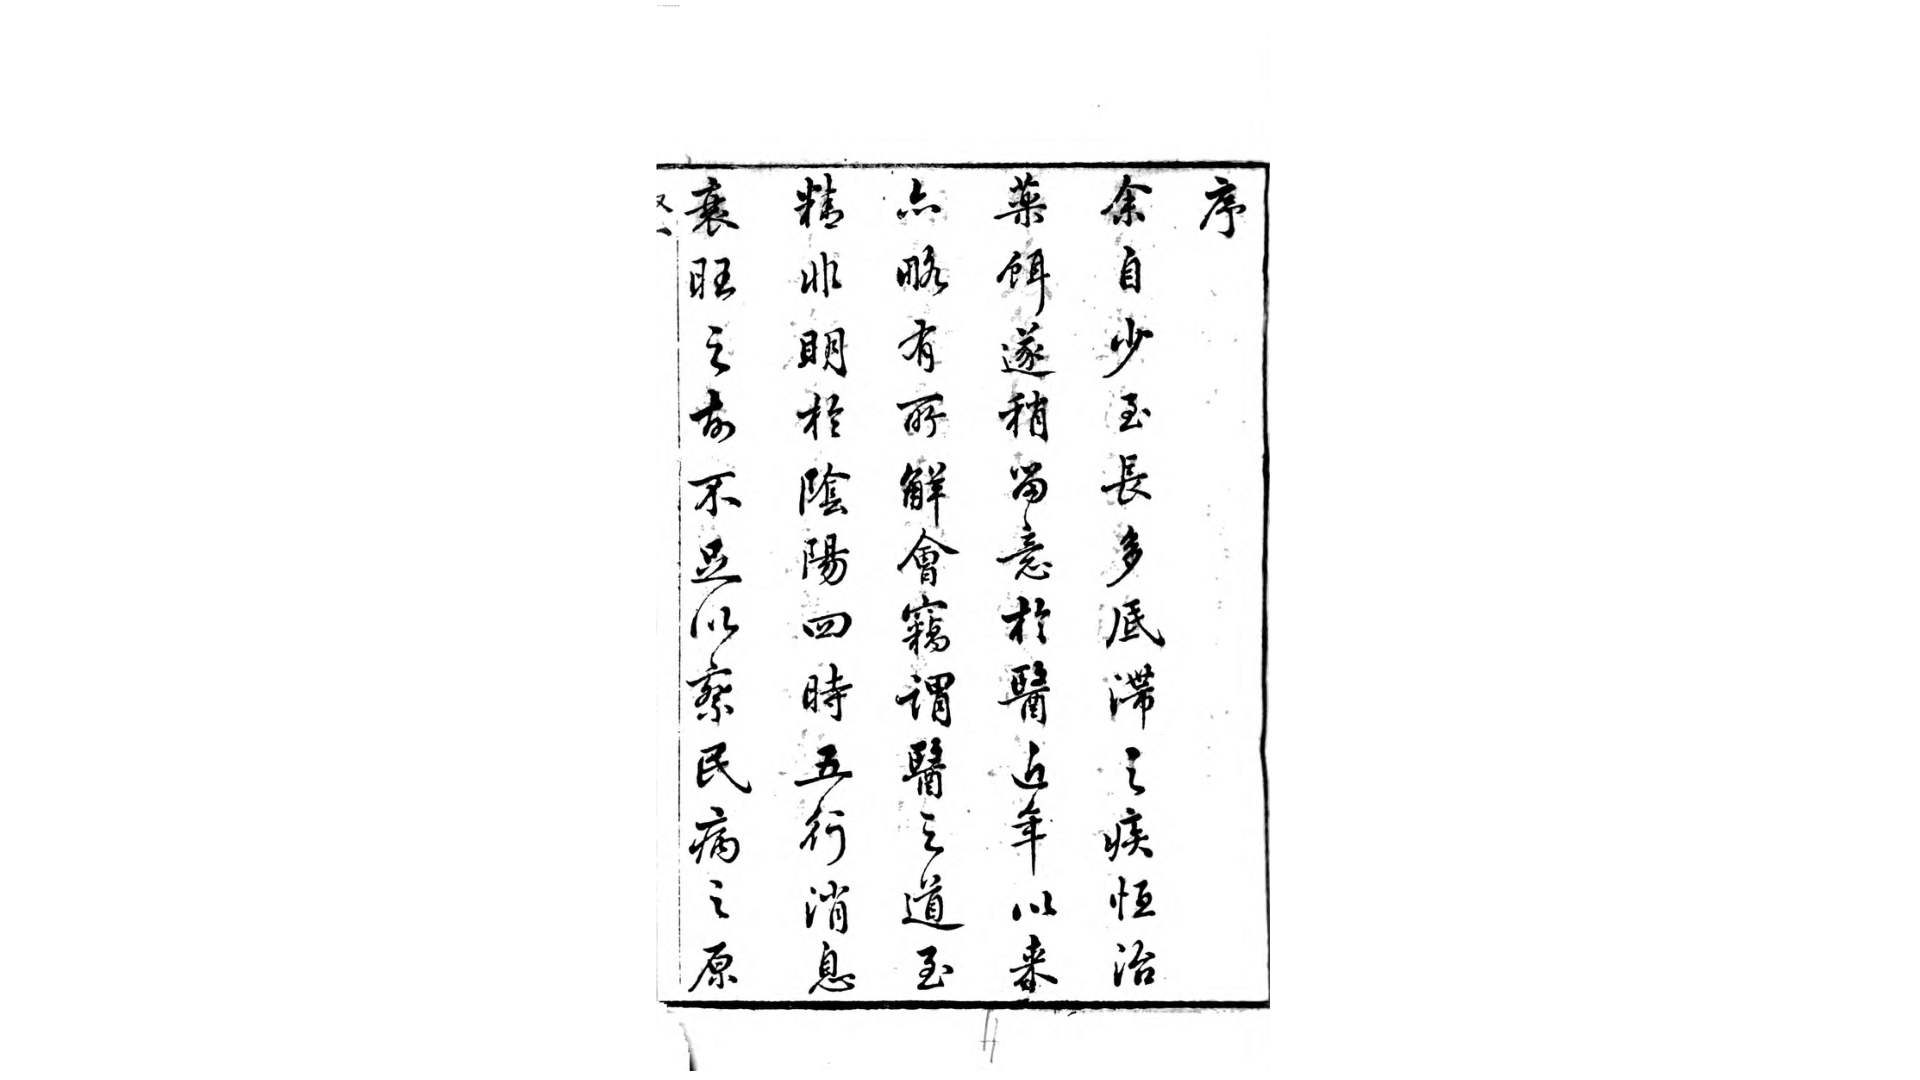 序
余自少至長多底滯之疾恒治
藥餌遂稍留意於醫近年以來
亦略有所解會竊謂醫之道至
精非明於陰陽四時五行消息
衰旺之故不足以察民病之原